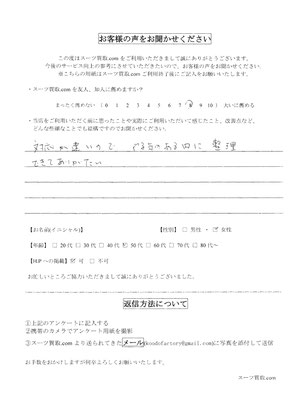 お客様の声をお聞かせください
この度はスーツ買取.comをご利用いただきまして誠にありがとうございます。
今後のサービス向上の参考にさせていただきたいので、お客様の声をお聞かせください
※こちらの用紙はスーツ買取.comご利用終了後にご記入をお願いいたします。
・スーツ買取.comを友人、知人に薦めますか?
まったく薦めない (0 1 2 3 4 5 6 7 8 9 10) 大いに薦める
・当店をご利用いただく前に思ったことや実際にご利用いただいて感じたこと、改善点など、
どんな些細なことでも結構ですのでお聞かせください。
対応が速いので、やる気のある内に整理
できてありがたい
【お名前(イニシャル)】 【性別】 □ 男性 ・ ☑ 女性
【年齢】 □ 20代 □ 30代 □ 40代 ☑ 50代 □ 60代 □ 70代 □ 80代~
【HPへの掲載】 ☑ 可 □ 不可
お忙しいところご協力いただきまして誠にありがとうございました。
返信方法について
①上記のアンケートに記入する
②携帯のカメラでアンケート用紙を撮影
③スーツ買取.comより送られてきたメール(kondofactory@gmail.com)に写真を添付して送信
お手数をおかけしますが何卒よろしくお願いいたします。
スーツ買取.com